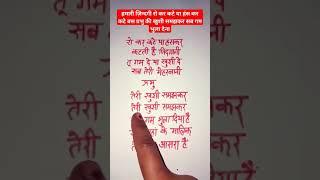 हमारी ज़िन्दगी रो कर कटे या हंस कर
कटे बस प्रभु की खुशी समझकर सब गम
भुला देना
रो कर कटे या हसकर
कटती है जिंदगी
तू गम दे या खुशी दे
सब तेरी मेहरबानी
प्रभु
तेरी खुशी समझकर
तेरी खुशी समझकर
गम भुला दिया है
के मालिक
आसरा है